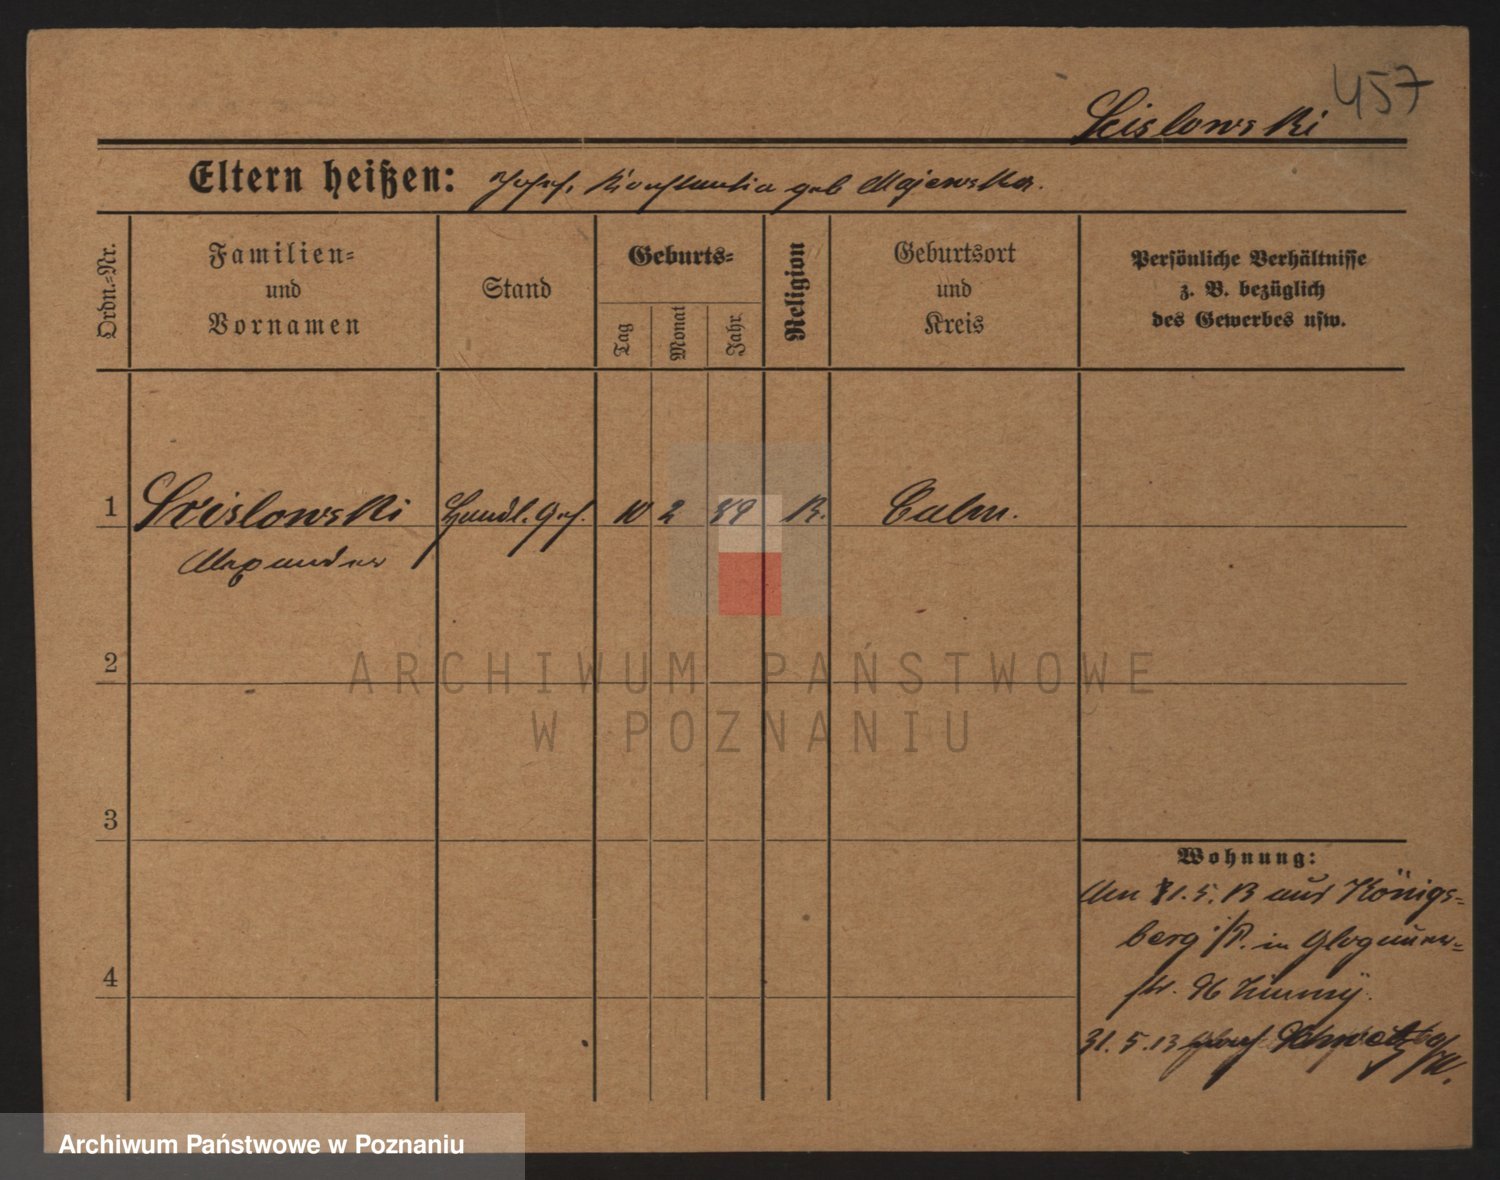 457
Scislowski
Eltern heißen: Josef, Konstantia geb Majewska.
Ordn.=Nr.
Familien=
und
Vornamen
Stand
Geburts=
Tag
Monat
Jahr
Religion
Geburtsort
und
Kreis
Persönliche Verhältnisse
z. B. bezüglich
des Gewerbes usw.
1 Scislowski Handl. Geh. 10 2 89 K. Culm.
Alexander
2
3
4
Wohnung:
Am 1.5.13 aus Königs=
berg i/P. in Glogauer=
str. 96
31.5.13 nach Schwetz a/W.
ARCHIWUM PAŃSTWOWE
W POZNANIU
Archiwum Państwowe w Poznaniu